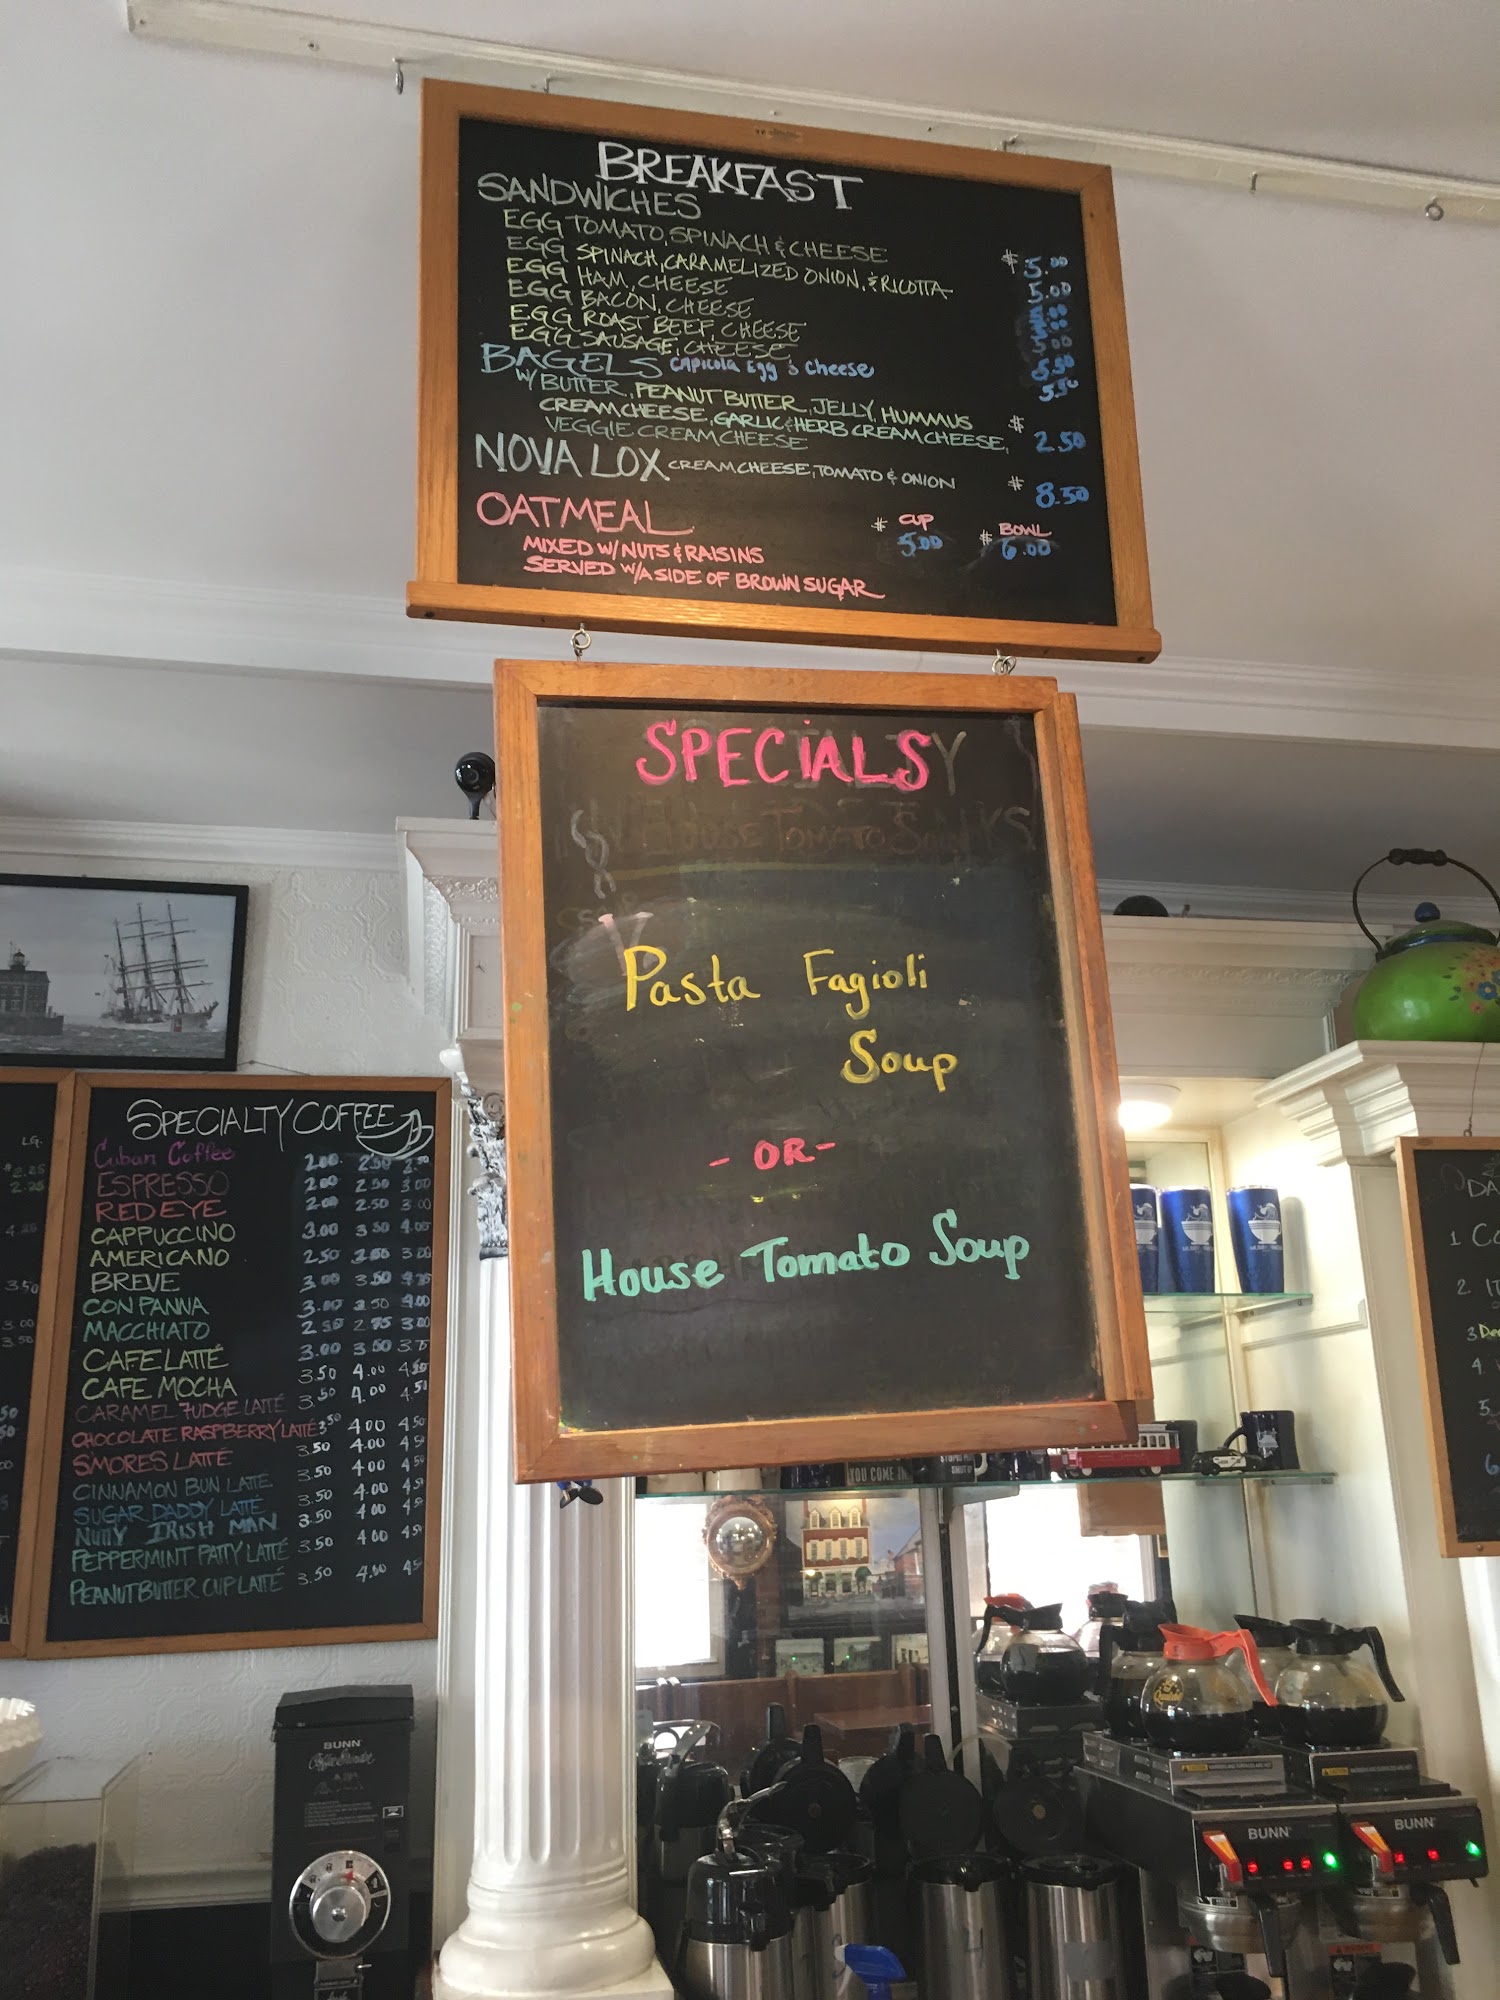 BREAKFAST
SANDWICHES
EGG TOMATO, SPINACH & CHEESE $5.00
EGG SPINACH, CARAMELIZED ONION, & RICOTTA 5.00
EGG HAM, CHEESE
EGG BACON, CHEESE 5.00
EGG ROAST BEEF, CHEESE 5.50
EGG SAUSAGE, CHEESE 5.50
BAGELS Capicola Egg & Cheese
W/ BUTTER, PEANUT BUTTER, JELLY, HUMMUS
CREAM CHEESE, GARLIC & HERB CREAM CHEESE, $2.50
VEGGIE CREAM CHEESE
NOVA LOX CREAM CHEESE, TOMATO & ONION $8.50
OATMEAL $ CUP 5.00 $ BOWL 6.00
MIXED W/ NUTS & RAISINS
SERVED W/ A SIDE OF BROWN SUGAR
SPECIALS
HOUSE TOMATO SOUP
Pasta Fagioli
Soup
- OR -
House Tomato Soup
SPECIALTY COFFEE
Cuban Coffee 2.00 2.50
ESPRESSO 2.00 2.50 3.00
RED EYE 2.00 2.50 3.00
CAPPUCCINO 3.00 3.50 4.00
AMERICANO 2.50 3.00
BREVE 3.00 3.50
CON PANNA 3.00 3.50 4.00
MACCHIATO 2.50 2.75 3.00
CAFE LATTÉ 3.00 3.50 3.75
CAFE MOCHA 3.50 4.00 4.50
CARAMEL FUDGE LATTÉ 3.50 4.00 4.50
CHOCOLATE RASPBERRY LATTÉ 3.50 4.00 4.50
SMORES LATTÉ 3.50 4.00 4.50
CINNAMON BUN LATTÉ 3.50 4.00 4.50
SUGAR DADDY LATTÉ 3.50 4.00 4.50
NUTTY IRISH MAN 3.50 4.00 4.50
PEPPERMINT PATTY LATTÉ 3.50 4.00 4.50
PEANUT BUTTER CUP LATTÉ 3.50 4.00 4.50
LG.
$2.25
2.25
4.25
3.50
3.00
3.50
DA
1 Co
2. IT
3
4.
5.
6
YOU COME IN
BUNN
BUNN
BUNN
CAUTION